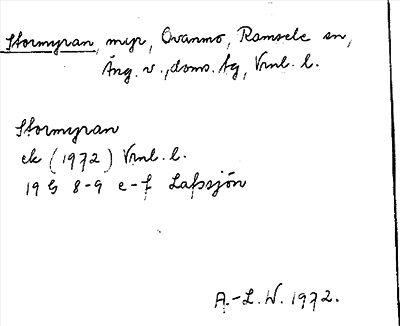 Stormyran, myr, Ovanmo, Ramsele sn,
Ång. v., doms. tg, Vrnl. l.
Stormyran
ek (1972) Vrnl. l.
19 G 8-9 e-f Lafssjön
A.-L. W. 1972.